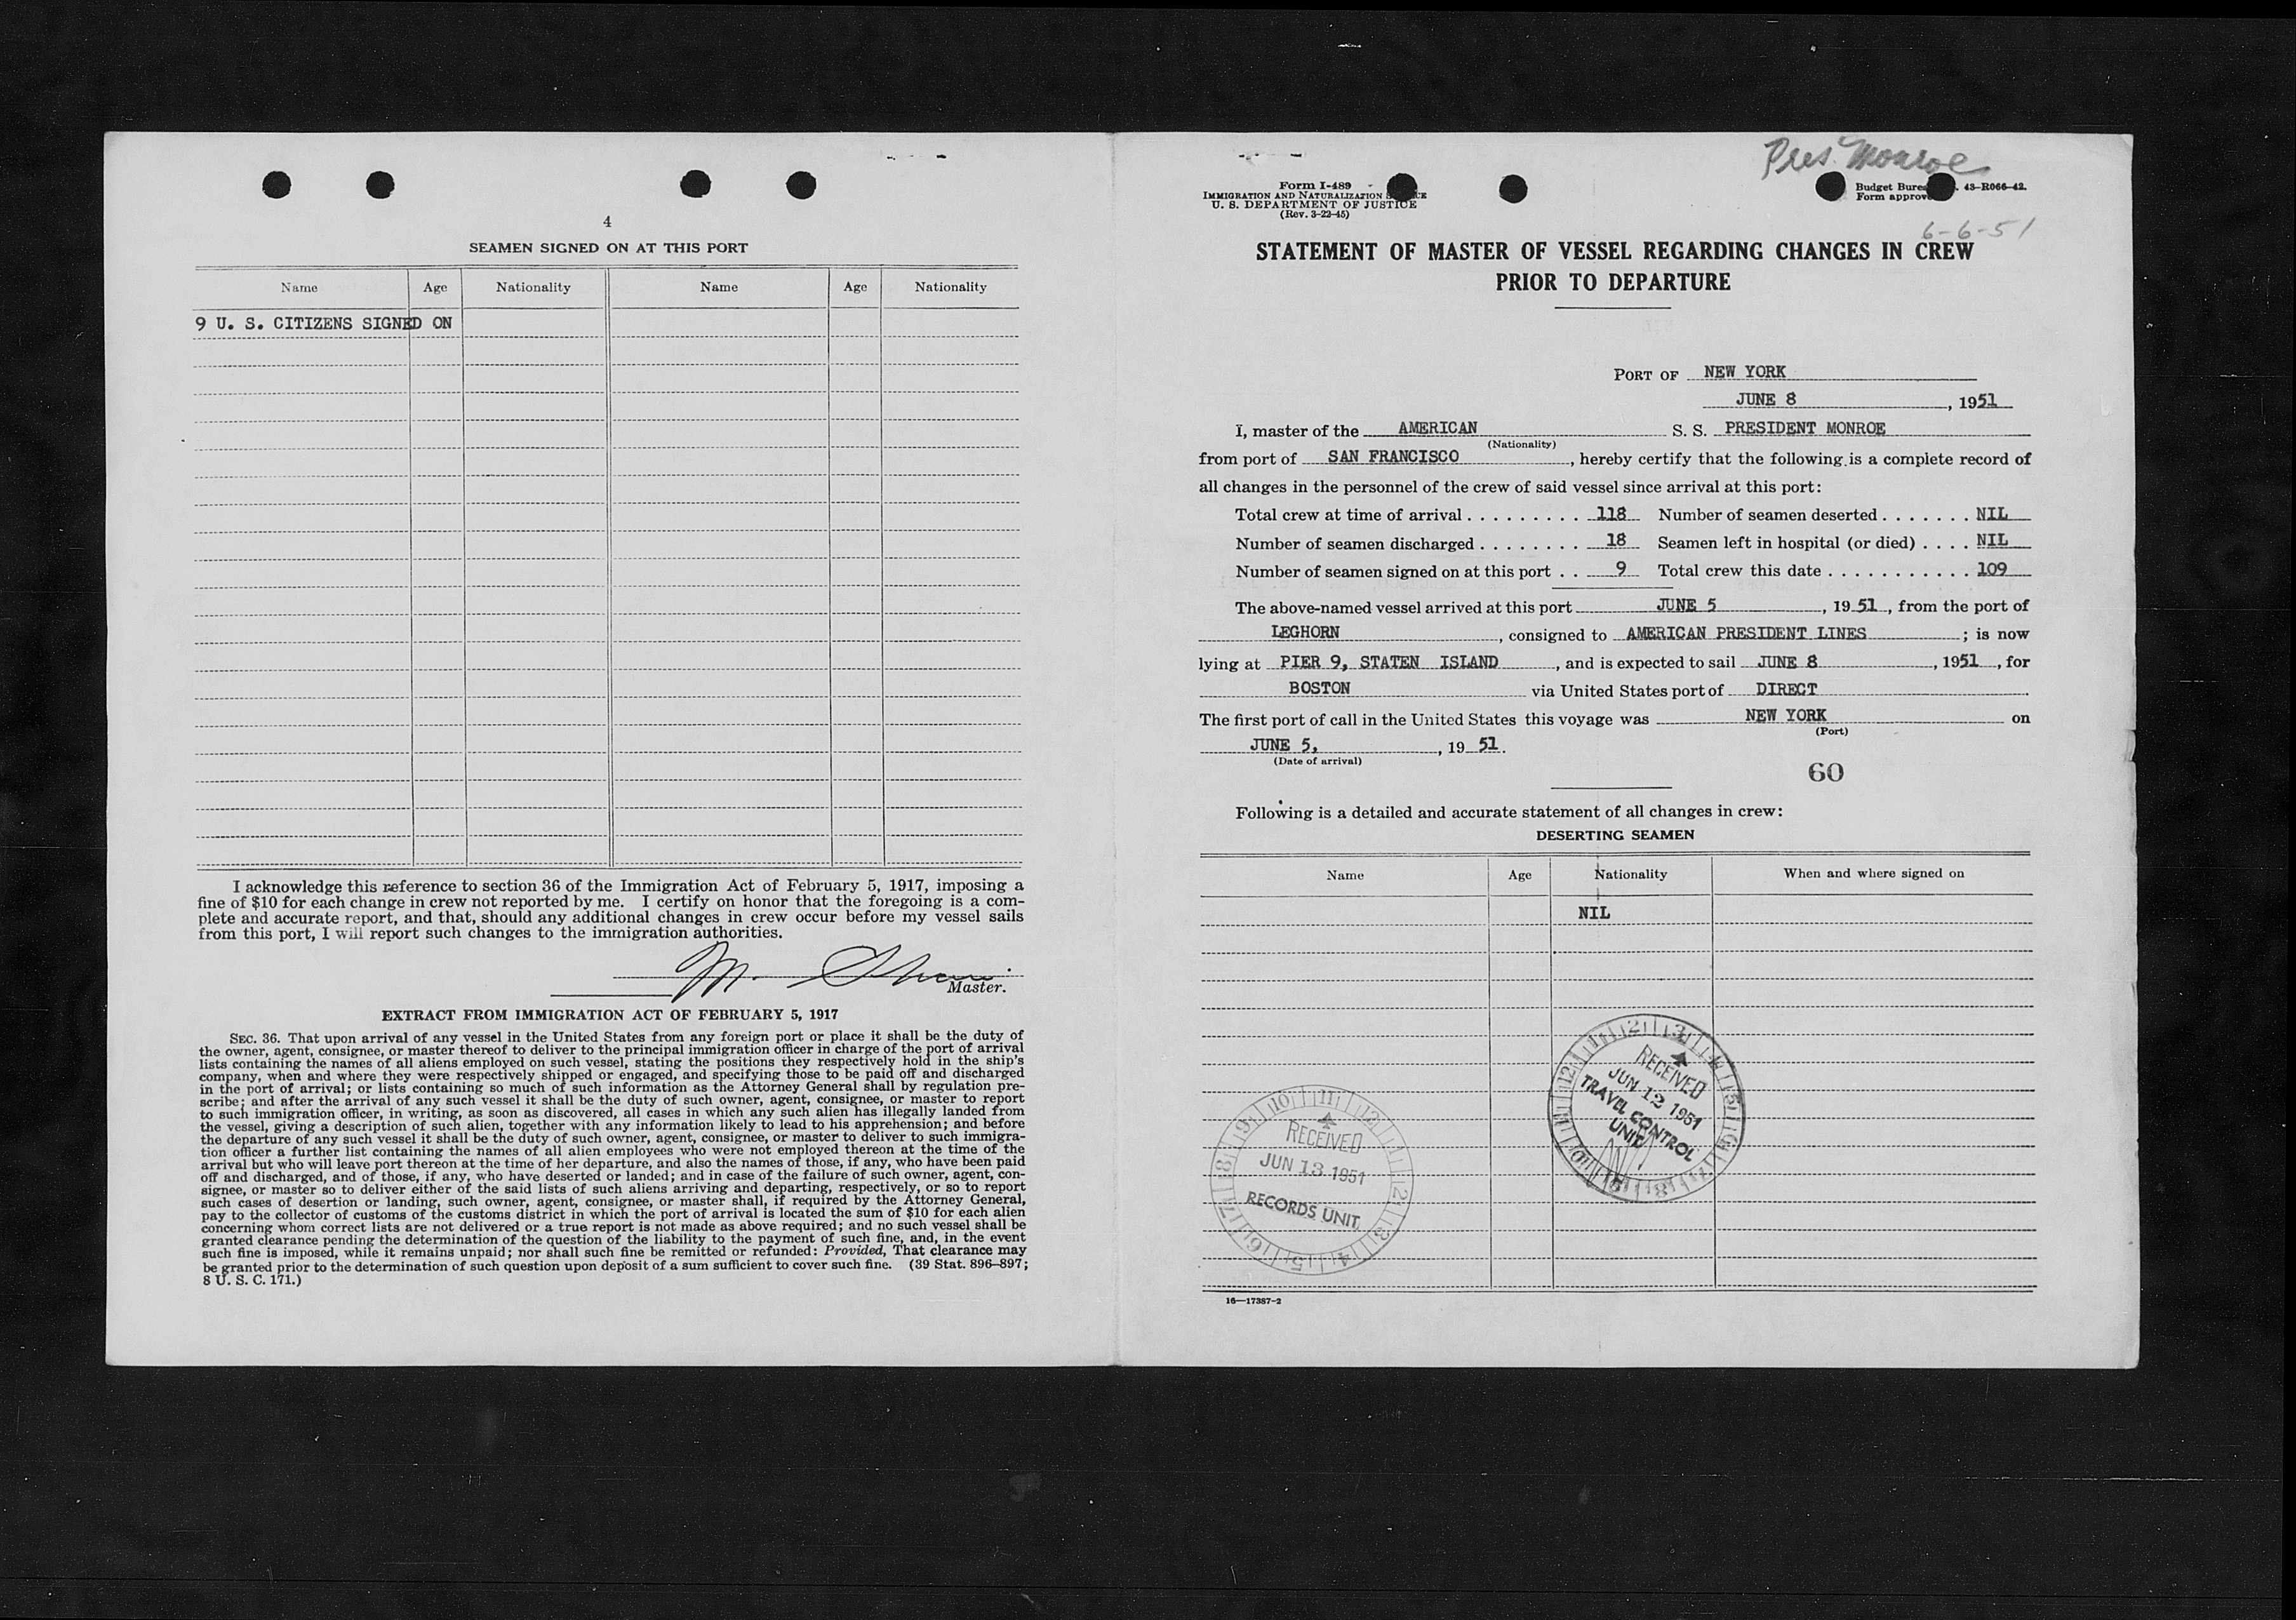 4
SEAMEN SIGNED ON AT THIS PORT
Name Age Nationality Name Age Nationality
9 U. S. CITIZENS SIGNED ON
I acknowledge this reference to section 36 of the Immigration Act of February 5, 1917, imposing a
fine of $10 for each change in crew not reported by me. I certify on honor that the foregoing is a com-
plete and accurate report, and that, should any additional changes in crew occur before my vessel sails
from this port, I will report such changes to the immigration authorities.
M.
Master.
EXTRACT FROM IMMIGRATION ACT OF FEBRUARY 5, 1917
SEC. 36. That upon arrival of any vessel in the United States from any foreign port or place it shall be the duty of
the owner, agent, consignee, or master thereof to deliver to the principal immigration officer in charge of the port of arrival
lists containing the names of all aliens employed on such vessel, stating the positions they respectively hold in the ship's
company, when and where they were respectively shipped or engaged, and specifying those to be paid off and discharged
in the port of arrival; or lists containing so much of such information as the Attorney General shall by regulation pre-
scribe; and after the arrival of any such vessel it shall be the duty of such owner, agent, consignee, or master to report
to such immigration officer, in writing, as soon as discovered, all cases in which any such alien has illegally landed from
the vessel, giving a description of such alien, together with any information likely to lead to his apprehension; and before
the departure of any such vessel it shall be the duty of such owner, agent, consignee, or master to deliver to such immigra-
tion officer a further list containing the names of all alien employees who were not employed thereon at the time of the
arrival but who will leave port thereon at the time of her departure, and also the names of those, if any, who have been paid
off and discharged, and of those, if any, who have deserted or landed; and in case of the failure of such owner, agent, con-
signee, or master so to deliver either of the said lists of such aliens arriving and departing, respectively, or so to report
such cases of desertion or landing, such owner, agent, consignee, or master shall, if required by the Attorney General,
pay to the collector of customs of the customs district in which the port of arrival is located the sum of $10 for each alien
concerning whom correct lists are not delivered or a true report is not made as above required; and no such vessel shall be
granted clearance pending the determination of the question of the liability to the payment of such fine, and, in the event
such fine is imposed, while it remains unpaid; nor shall such fine be remitted or refunded: Provided, That clearance may
be granted prior to the determination of such question upon deposit of a sum sufficient to cover such fine. (39 Stat. 896–897;
8 U. S. C. 171.)
Pres. Monroe
Form I-489
IMMIGRATION AND NATURALIZATION
U. S. DEPARTMENT OF JUSTICE
(Rev. 3-22-45)
Budget 43-R066-42.
Form
6-6-51
STATEMENT OF MASTER OF VESSEL REGARDING CHANGES IN CREW
PRIOR TO DEPARTURE
PORT OF NEW YORK
JUNE 8, 1951
I, master of the AMERICAN S. S. PRESIDENT MONROE
(Nationality)
from port of SAN FRANCISCO, hereby certify that the following is a complete record of
all changes in the personnel of the crew of said vessel since arrival at this port:
Total crew at time of arrival . . . . . . . . . 118 Number of seamen deserted . . . . . . . NIL
Number of seamen discharged . . . . . . . . 18 Seamen left in hospital (or died) . . . . NIL
Number of seamen signed on at this port . . 9 Total crew this date . . . . . . . . . . . 109
The above-named vessel arrived at this port JUNE 5, 1951, from the port of
LEGHORN, consigned to AMERICAN PRESIDENT LINES; is now
lying at PIER 9, STATEN ISLAND, and is expected to sail JUNE 8, 1951, for
BOSTON via United States port of DIRECT
The first port of call in the United States this voyage was NEW YORK on
(Port)
JUNE 5, , 1951.
(Date of arrival)
60
Following is a detailed and accurate statement of all changes in crew:
DESERTING SEAMEN
Name Age Nationality When and where signed on
NIL
RECEIVED
JUN 12 1951
TRAVEL CONTROL
UNIT
RECEIVED
JUN 13 1951
RECORDS UNIT
16—17387-2